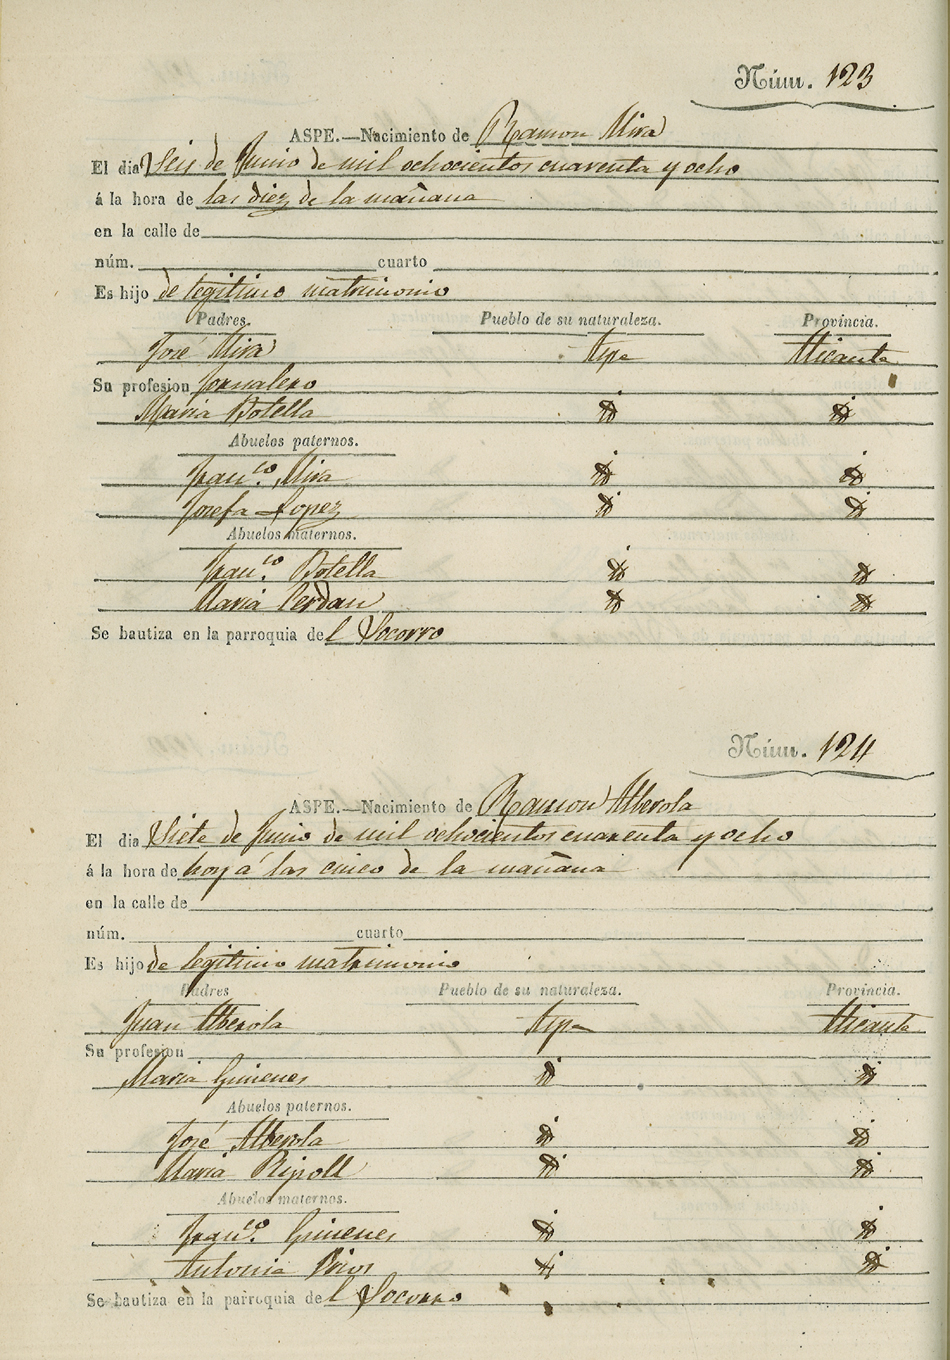 Núm. 123
ASPE.—Nacimiento de Ramon Mira
El dia Seis de Junio de mil ochocientos cuarenta y ocho
á la hora de las diez de la mañana
en la calle de
núm. cuarto
Es hijo de legitimo matrimonio
Padres. Pueblo de su naturaleza. Provincia.
José Mira Aspe Alicante
Su profesion Jornalero
Maria Botella id id
Abuelos paternos.
Fran.co Mira id id
Josefa Lopez id id
Abuelos maternos.
Fran.co Botella id id
Maria Cerdan id id
Se bautiza en la parroquia del Socorro
Núm. 124
ASPE.—Nacimiento de Ramon Alberola
El dia Siete de Junio de mil ochocientos cuarenta y ocho
á la hora de hoy á las cinco de la mañana
en la calle de
núm. cuarto
Es hijo de legitimo matrimonio
Padres Pueblo de su naturaleza. Provincia.
Juan Alberola Aspe Alicante
Su profesion
Maria Gimenes id id
Abuelos paternos.
José Alberola id id
Maria Ripoll id id
Abuelos maternos.
Fran.co Gimenes id id
Antonia id id
Se bautiza en la parroquia del Socorro